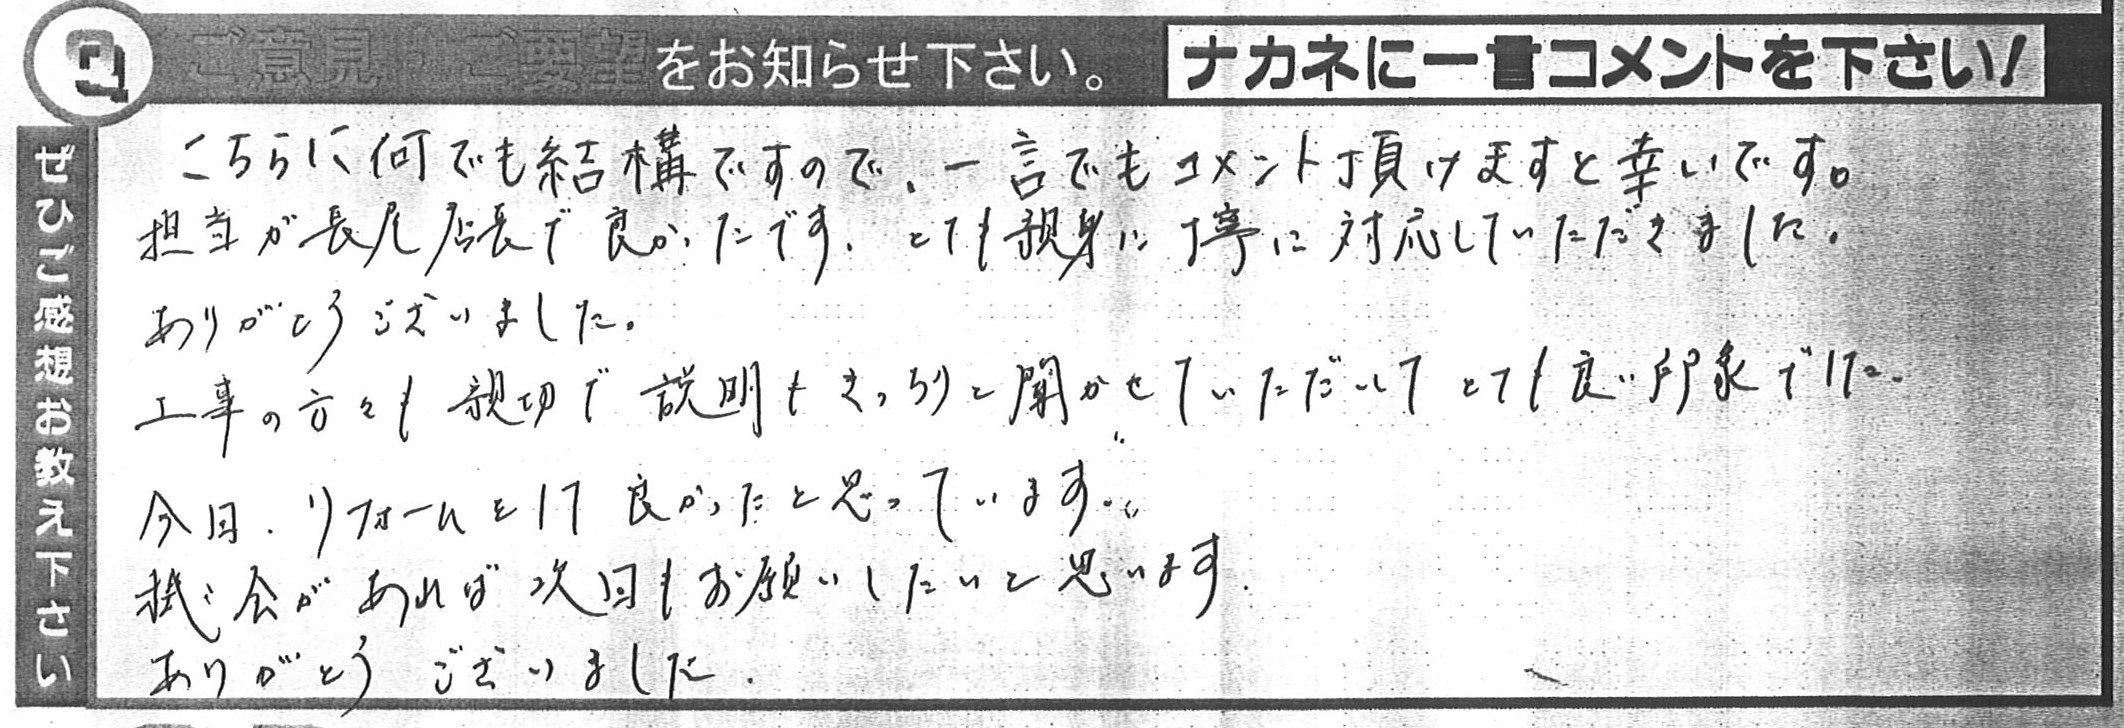 Q ご意見・ご要望をお知らせ下さい。 ナカネに一言コメントを下さい!
ぜひご感想お教え下さい
こちらに何でも結構ですので、一言でもコメント頂けますと幸いです。
担当が長尾店長で良かったです。とても親身に丁寧に対応していただきました。
ありがとうございました。
工事の方々も親切で説明もきっちりと聞かせていただいてとても良い印象でした。
今回、リフォームをして良かったと思っています。
機会があれば次回もお願いしたいと思います。
ありがとうございました。